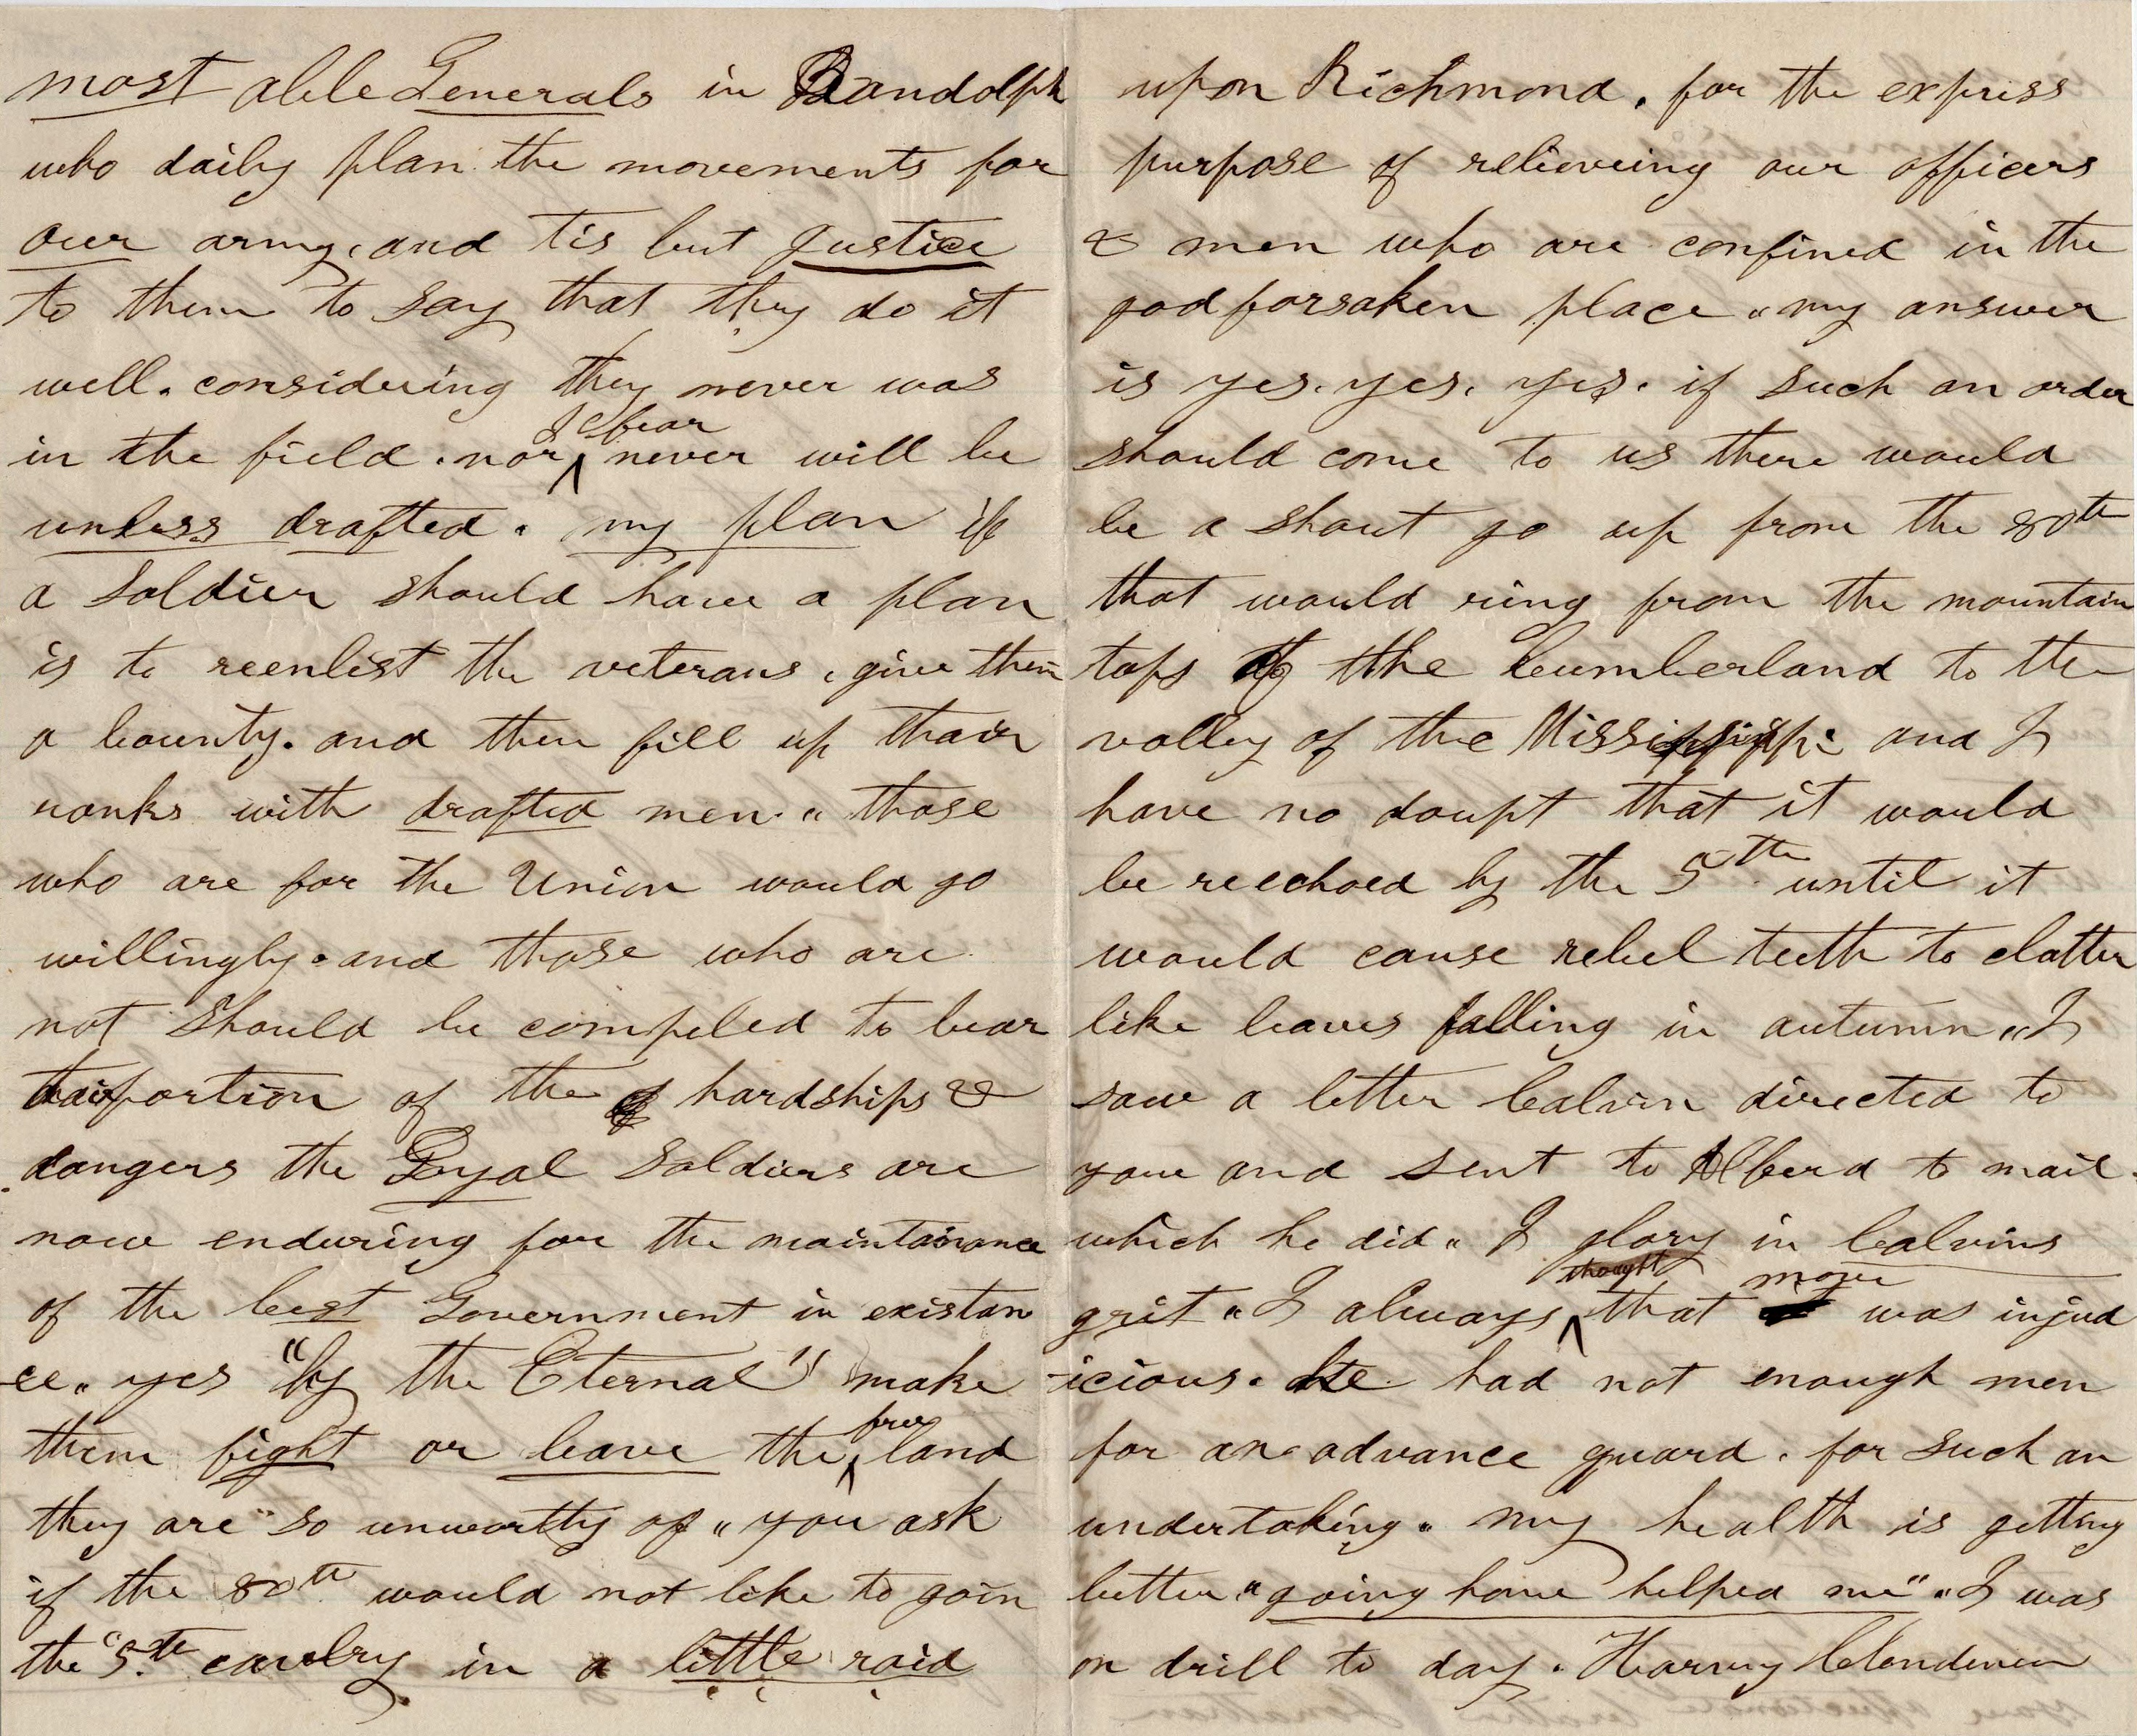 most able Generals in Randolph
who daily plan the movements for
our army, and tis but justice
to them to say that they do it
well. considering they never was
I fear
in the field. nor never will be
unless drafted. my plan if
a soldier should have a plan
is to reenlist the veterans, give them
a bounty. and then fill up thair
ranks with drafted men. " those
who are for the Union would go
willingly. and those who are
not should be compeled to bear
thair portion of the hardships &
dangers the Loyal Soldiers are
now enduring for the maintainance
of the best Government in existan
ce. " yes "by the Eternal" make
free
them fight or leave the land
they are so unworthy of " you ask
if the 80th would not like to goin
the 5th cavelry in a little raid
upon Richmond, for the express
purpose of relieveing our officers
& men who are confined in the
godforsaken place " my answer
is yes. yes. yes. if such an order
should come to us there would
be a shout go up from the 80th
that would ring from the mountain
tops of the Cumberland to the
valley of the Mississippi and I
have no doupt that it would
be reechoed by the 5th until it
would cause rebel teeth to clatter
like leaves falling in autumn " I
saw a letter Calvin directed to
you and sent to Alberd to mail.
which he did " I glory in Calvins
thought move
grit " I always that was injud
icious. He had not enough men
for an advance guard. for such an
undertaking. " my health is getting
better " going home helped me " " I was
on drill to day. Harvey Clendenen